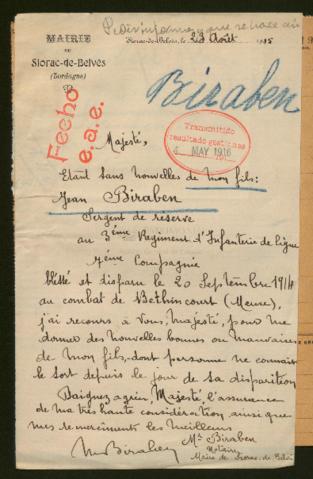 MAIRIE
DE
Siorac-de-Belvès
(Dordogne)
Siorac-de-Belvès, le 23 Août 1915
Biraben
Fecho
e.a.e.
Transmitido
resultado gestiones
4 MAY 1916
Majesté,
Etant sans nouvelles de mon fils:
Jean Biraben
Sergent de réserve
au 3ème Regiment d'Infanterie de ligne
7ème Compagnie
blessé et disparu le 20 Septembre 1914
au combat de Béthincourt (Meuse),
j'ai recours à Vous, Majesté, pour me
donner des nouvelles bonnes ou mauvaises
de mon fils, dont personne ne connait
le sort depuis le jour de sa disparition
Daignez agréer, Majesté, l'assurance
de ma très haute considération ainsi que
mes remerciments les meilleurs
Biraben
Mr Biraben
Notaire
Maire de Siorac-de-Belvès